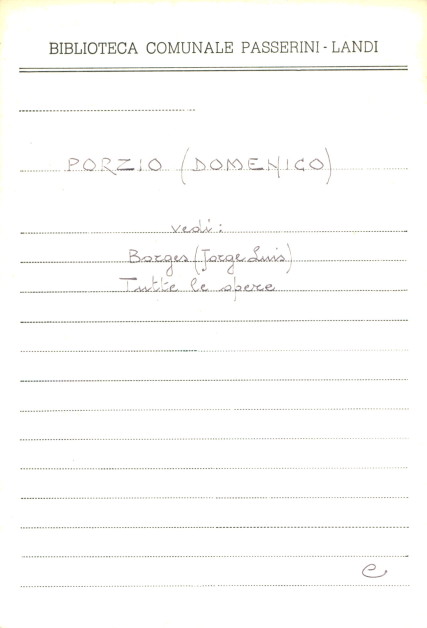 BIBLIOTECA COMUNALE PASSERINI - LANDI
PORZIO (DOMENICO)
vedi:
Borges (Jorge Luis)
Tutte le opere
e